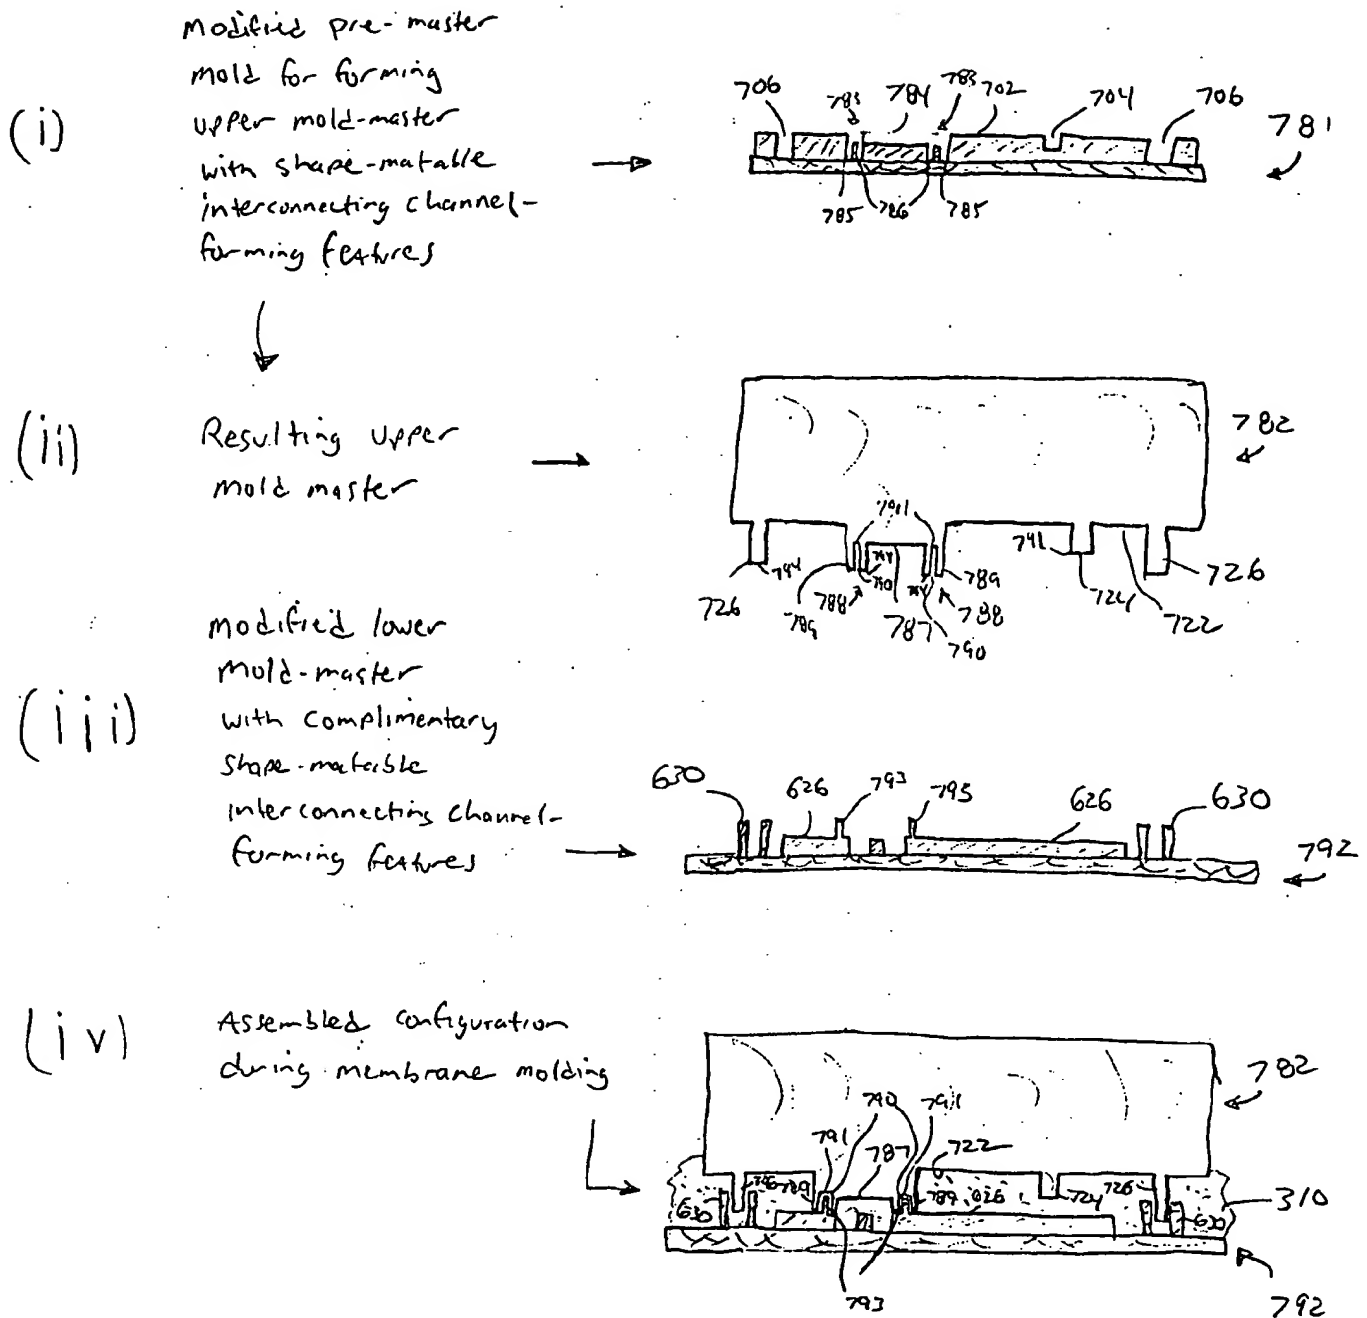 (i)
Modified pre-master
mold for forming
upper mold-master
with shape-matable
interconnecting channel-
forming features
706
783
784
783
702
704
706
781
785
786
785
(ii)
Resulting upper
mold master
782
791
741
726
744
789
788
790
787
789
788
790
724
722
726
(iii)
modified lower
mold-master
with complimentary
shape-matable
interconnecting channel-
forming features
630
626
793
793
626
630
792
(iv)
Assembled configuration
during membrane molding
782
790
791
791
787
722
630
789
789
626
724
726
630
310
793
792